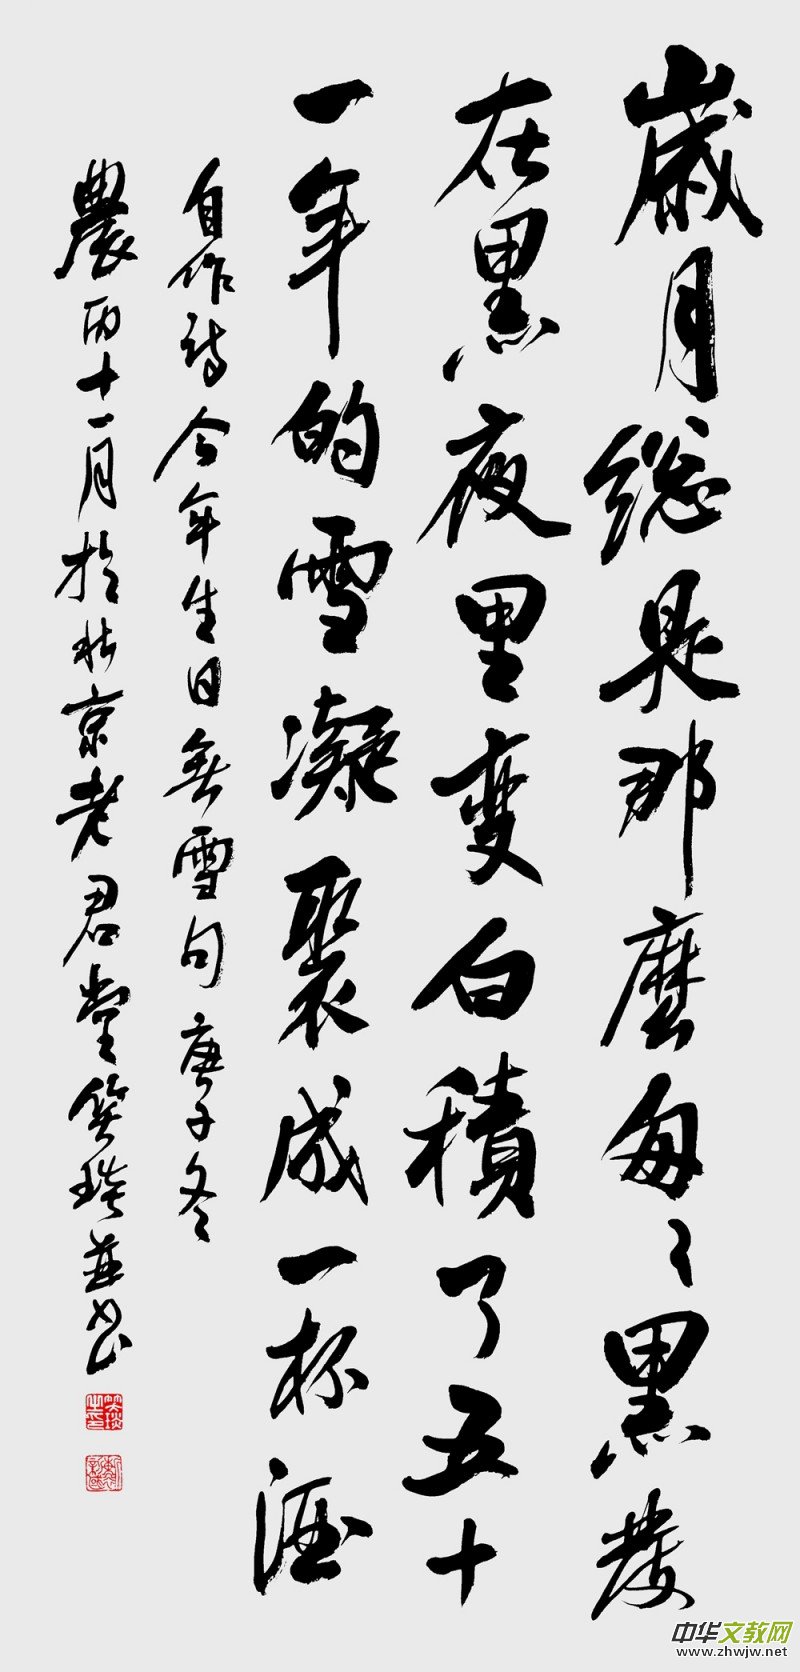 歲月總是那麼匆々黑髮
在黑夜里变白積了五十
一年的雪凝聚成一杯酒
自作詩今年生日無雪句庚子冬
農历十一月於北京老君堂笑琰並书
中华文教网
www.zhwjw.net